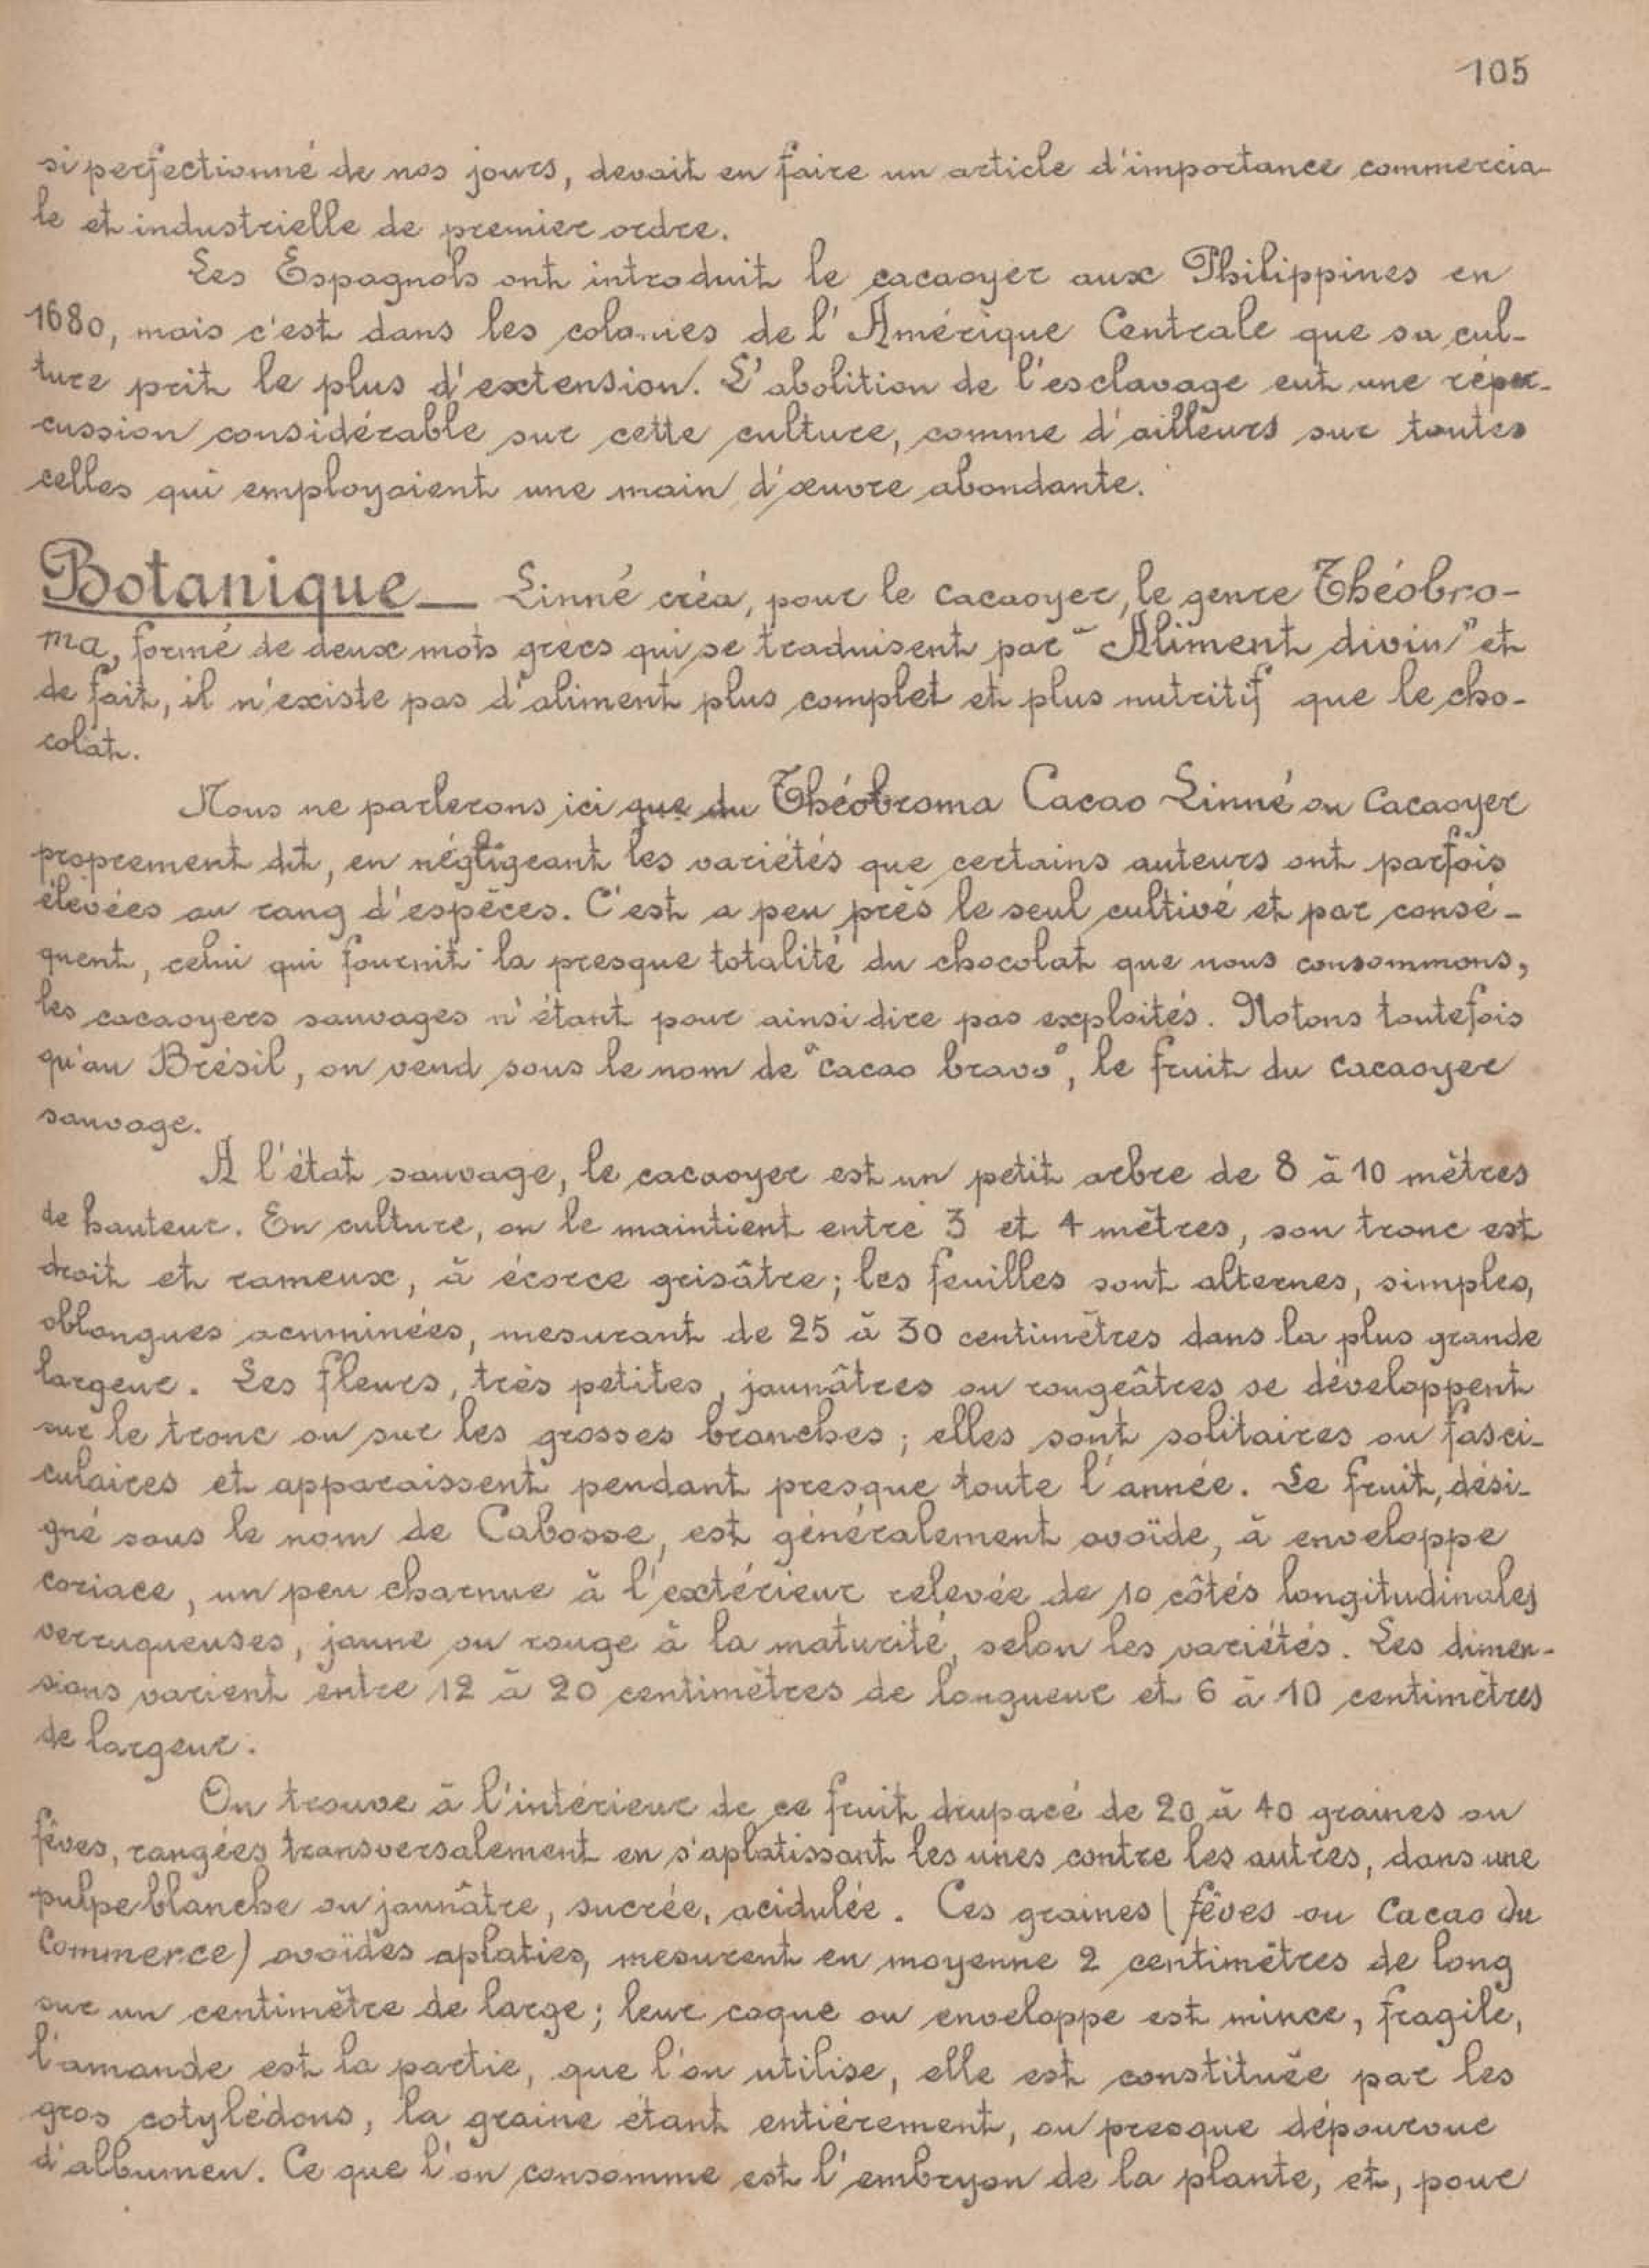 105
si perfectionné de nos jours, devait en faire un article d'importance commercia-
le et industrielle de premier ordre.
Les Espagnols ont introduit le cacaoyer aux Philippines en
1680, mais c'est dans les colonies de l'Amérique Centrale que sa cul-
ture prit le plus d'extension. L'abolition de l'esclavage eut une réper-
cussion considérable sur cette culture, comme d'ailleurs sur toutes
celles qui employaient une main d'œuvre abondante.
Botanique — Linné créa, pour le cacaoyer, le genre Théobro-
ma, formé de deux mots grecs qui se traduisent par "Aliment divin" et
de fait, il n'existe pas d'aliment plus complet et plus nutritif que le cho-
colat.
Nous ne parlerons ici que du Théobroma Cacao Linné ou Cacaoyer
proprement dit, en négligeant les variétés que certains auteurs ont parfois
élevées au rang d'espèces. C'est a peu près le seul cultivé et par consé-
quent, celui qui fournit la presque totalité du chocolat que nous consommons,
les cacaoyers sauvages n'étant pour ainsi dire pas exploités. Notons toutefois
qu'au Brésil, on vend sous le nom de "cacao bravo", le fruit du cacaoyer
sauvage.
A l'état sauvage, le cacaoyer est un petit arbre de 8 à 10 mètres
de hauteur. En culture, on le maintient entre 3 et 4 mètres, son tronc est
droit et rameux, à écorce grisâtre; les feuilles sont alternes, simples,
oblongues acuminées, mesurant de 25 à 30 centimètres dans la plus grande
largeur. Les fleurs, très petites, jaunâtres ou rougeâtres se développent
sur le tronc ou sur les grosses branches; elles sont solitaires ou fasci-
culaires et apparaissent pendant presque toute l'année. Le fruit, dési-
gné sous le nom de Cabosse, est généralement ovoïde, à enveloppe
coriace, un peu charnue à l'extérieur relevée de 10 côtés longitudinales
verruqueuses, jaune ou rouge à la maturité, selon les variétés. Les dimen-
sions varient entre 12 à 20 centimètres de longueur et 6 à 10 centimètres
de largeur.
On trouve à l'intérieur de ce fruit drupacé de 20 à 40 graines ou
fèves, rangées transversalement en s'aplatissant les unes contre les autres, dans une
pulpe blanche ou jaunâtre, sucrée, acidulée. Ces graines (fèves ou Cacao du
Commerce) ovoïdes aplaties, mesurent en moyenne 2 centimètres de long
sur un centimètre de large; leur coque ou enveloppe est mince, fragile,
l'amande est la partie, que l'on utilise, elle est constituée par les
gros cotylédons, la graine étant entièrement, ou presque dépourvue
d'albumen. Ce que l'on consomme est l'embryon de la plante, et, pour